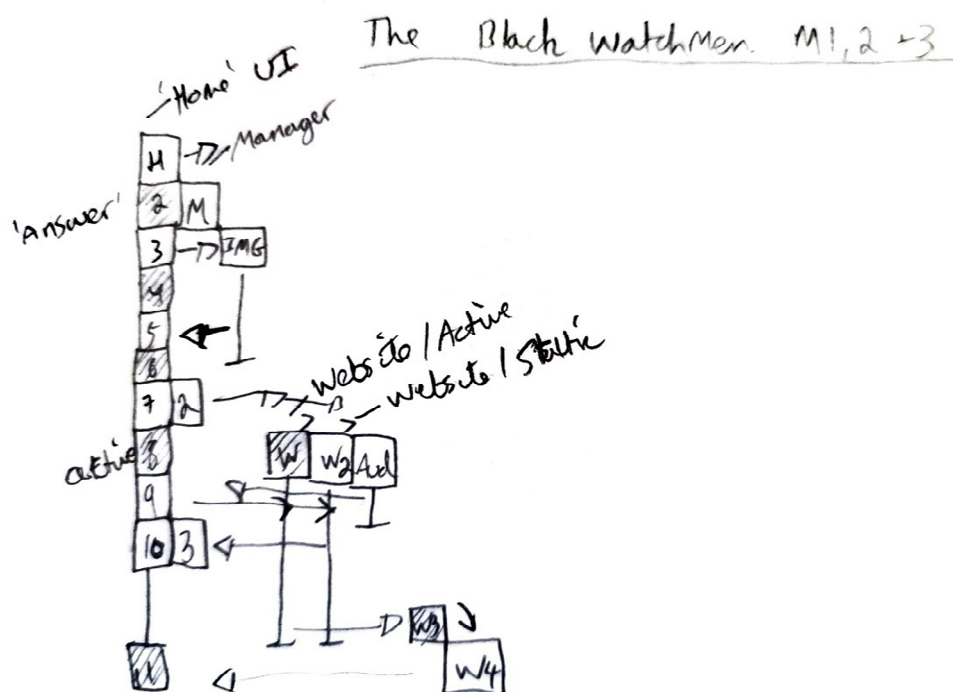 The Black Watchmen M1, 2 + 3
'Home' UI
H Manager
'Answer' 2 M
3 IMG
4
5
6
Website / Active
Website / Static
7 2
active 8
W W2 Aud
9
10 3
W3
11 W4